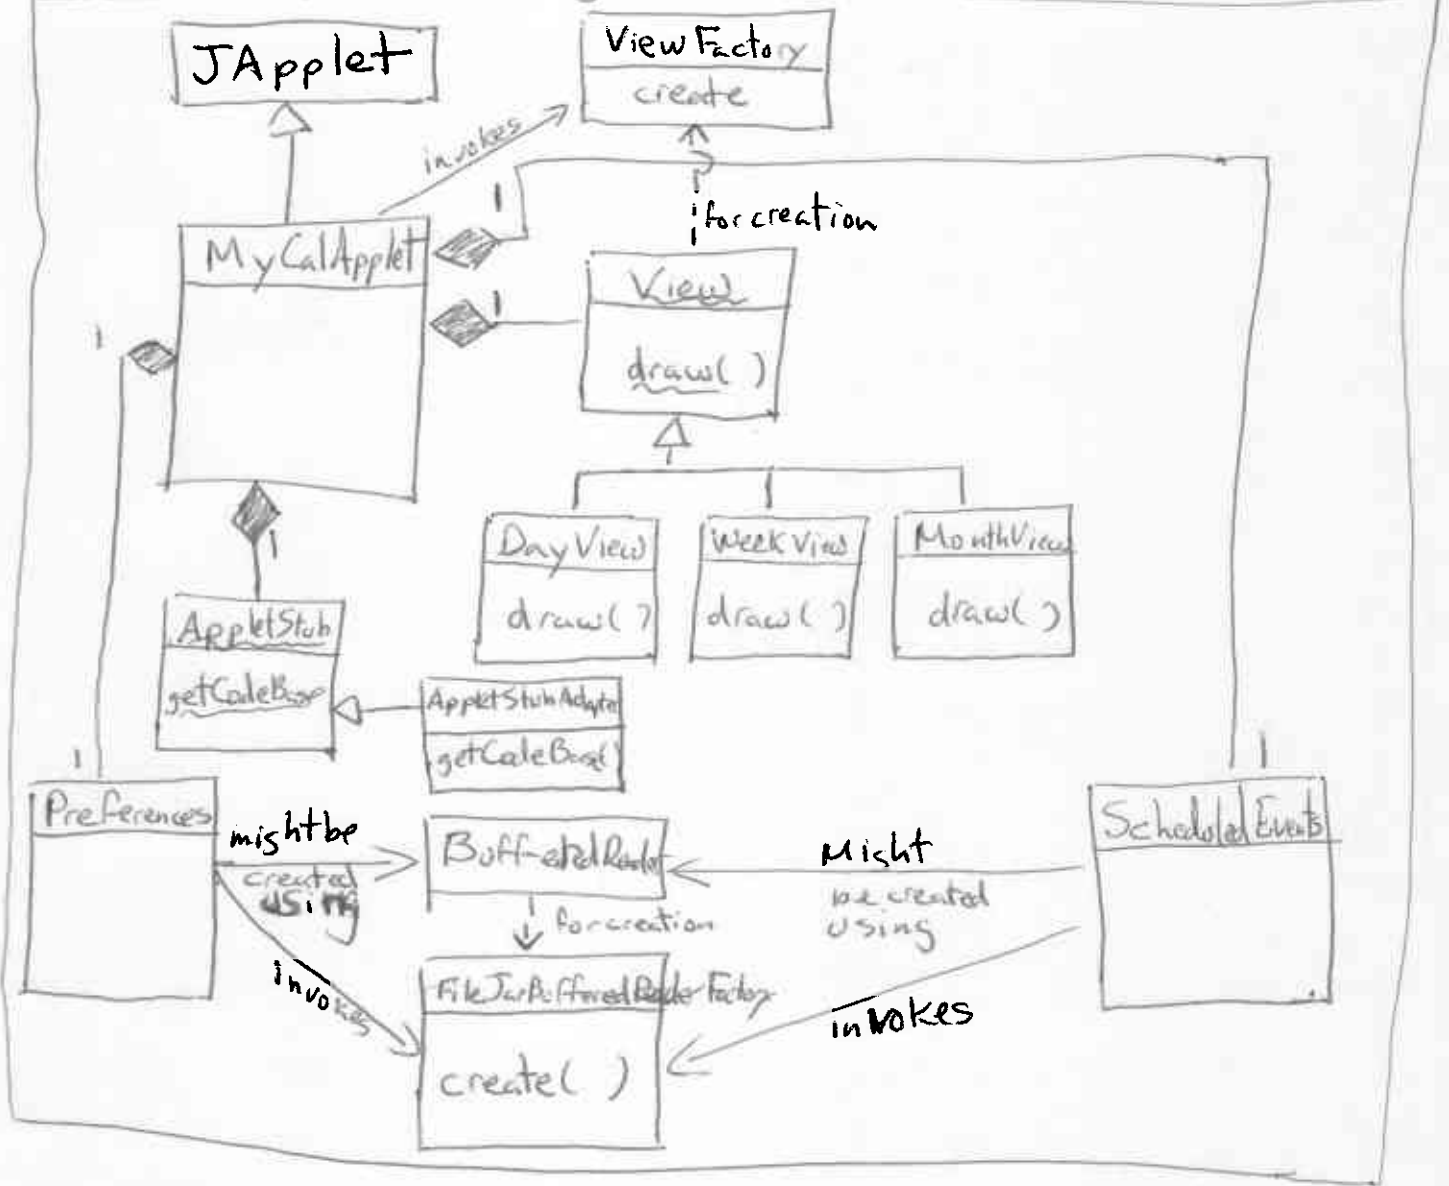 JApplet
ViewFactory
create
invokes
1
for creation
MyCalApplet
1
View
draw( )
1
1
DayView
draw( )
WeekView
draw( )
MonthView
draw( )
AppletStub
getCodeBase
AppletStubAdapter
getCodeBase()
1
1
Preferences
might be
created
using
BufferedReader
Might
be created
using
ScheduledEvents
for creation
invokes
FileJarBufferedReaderFactory
create( )
invokes